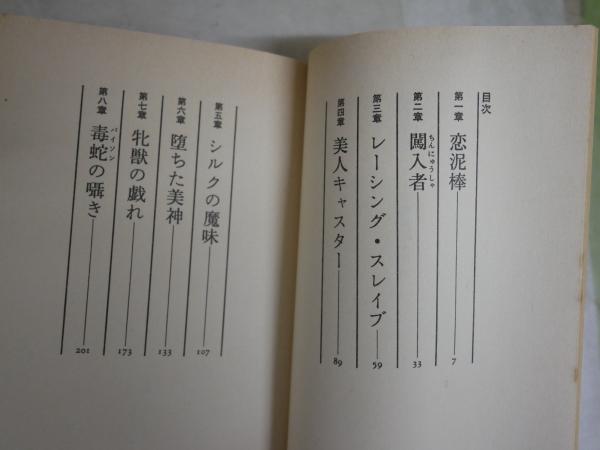 目次
第一章 恋泥棒 7
第二章 闖入者 ちんにゅうしゃ 33
第三章 レーシング・スレイブ 59
第四章 美人キャスター 89
第五章 シルクの魔味 107
第六章 堕ちた美神 133
第七章 牝獣の戯れ 173
第八章 毒蛇の囁き パイソン 201